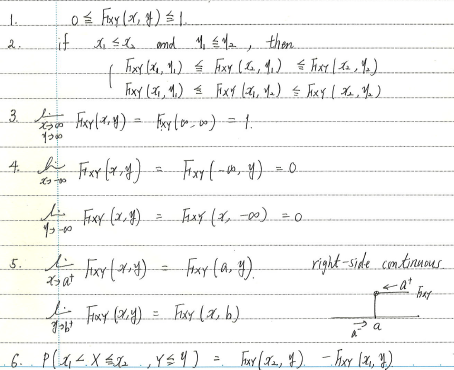 1. 0 ≦ Fxy(x, y) ≦ 1.
2. if x₁ ≦ x₂ and y₁ ≦ y₂, then
Fxy(x₁, y₁) ≦ Fxy(x₂, y₁) ≦ Fxy(x₂, y₂)
Fxy(x₁, y₁) ≦ Fxy(x₁, y₂) ≦ Fxy(x₂, y₂)
3. li x→∞ y→∞ Fxy(x, y) = Fxy(∞, ∞) = 1.
4. li x→-∞ Fxy(x, y) = Fxy(-∞, y) = 0
li y→-∞ Fxy(x, y) = Fxy(x, -∞) = 0
5. li x→a⁺ Fxy(x, y) = Fxy(a, y). right-side continuous
← a⁺ Fxy
li y→b⁺ Fxy(x, y) = Fxy(x, b)
a⁻ → a
6. P(x₁ < X ≦ x₂, Y ≦ y) = Fxy(x₂, y) - Fxy(x₁, y)